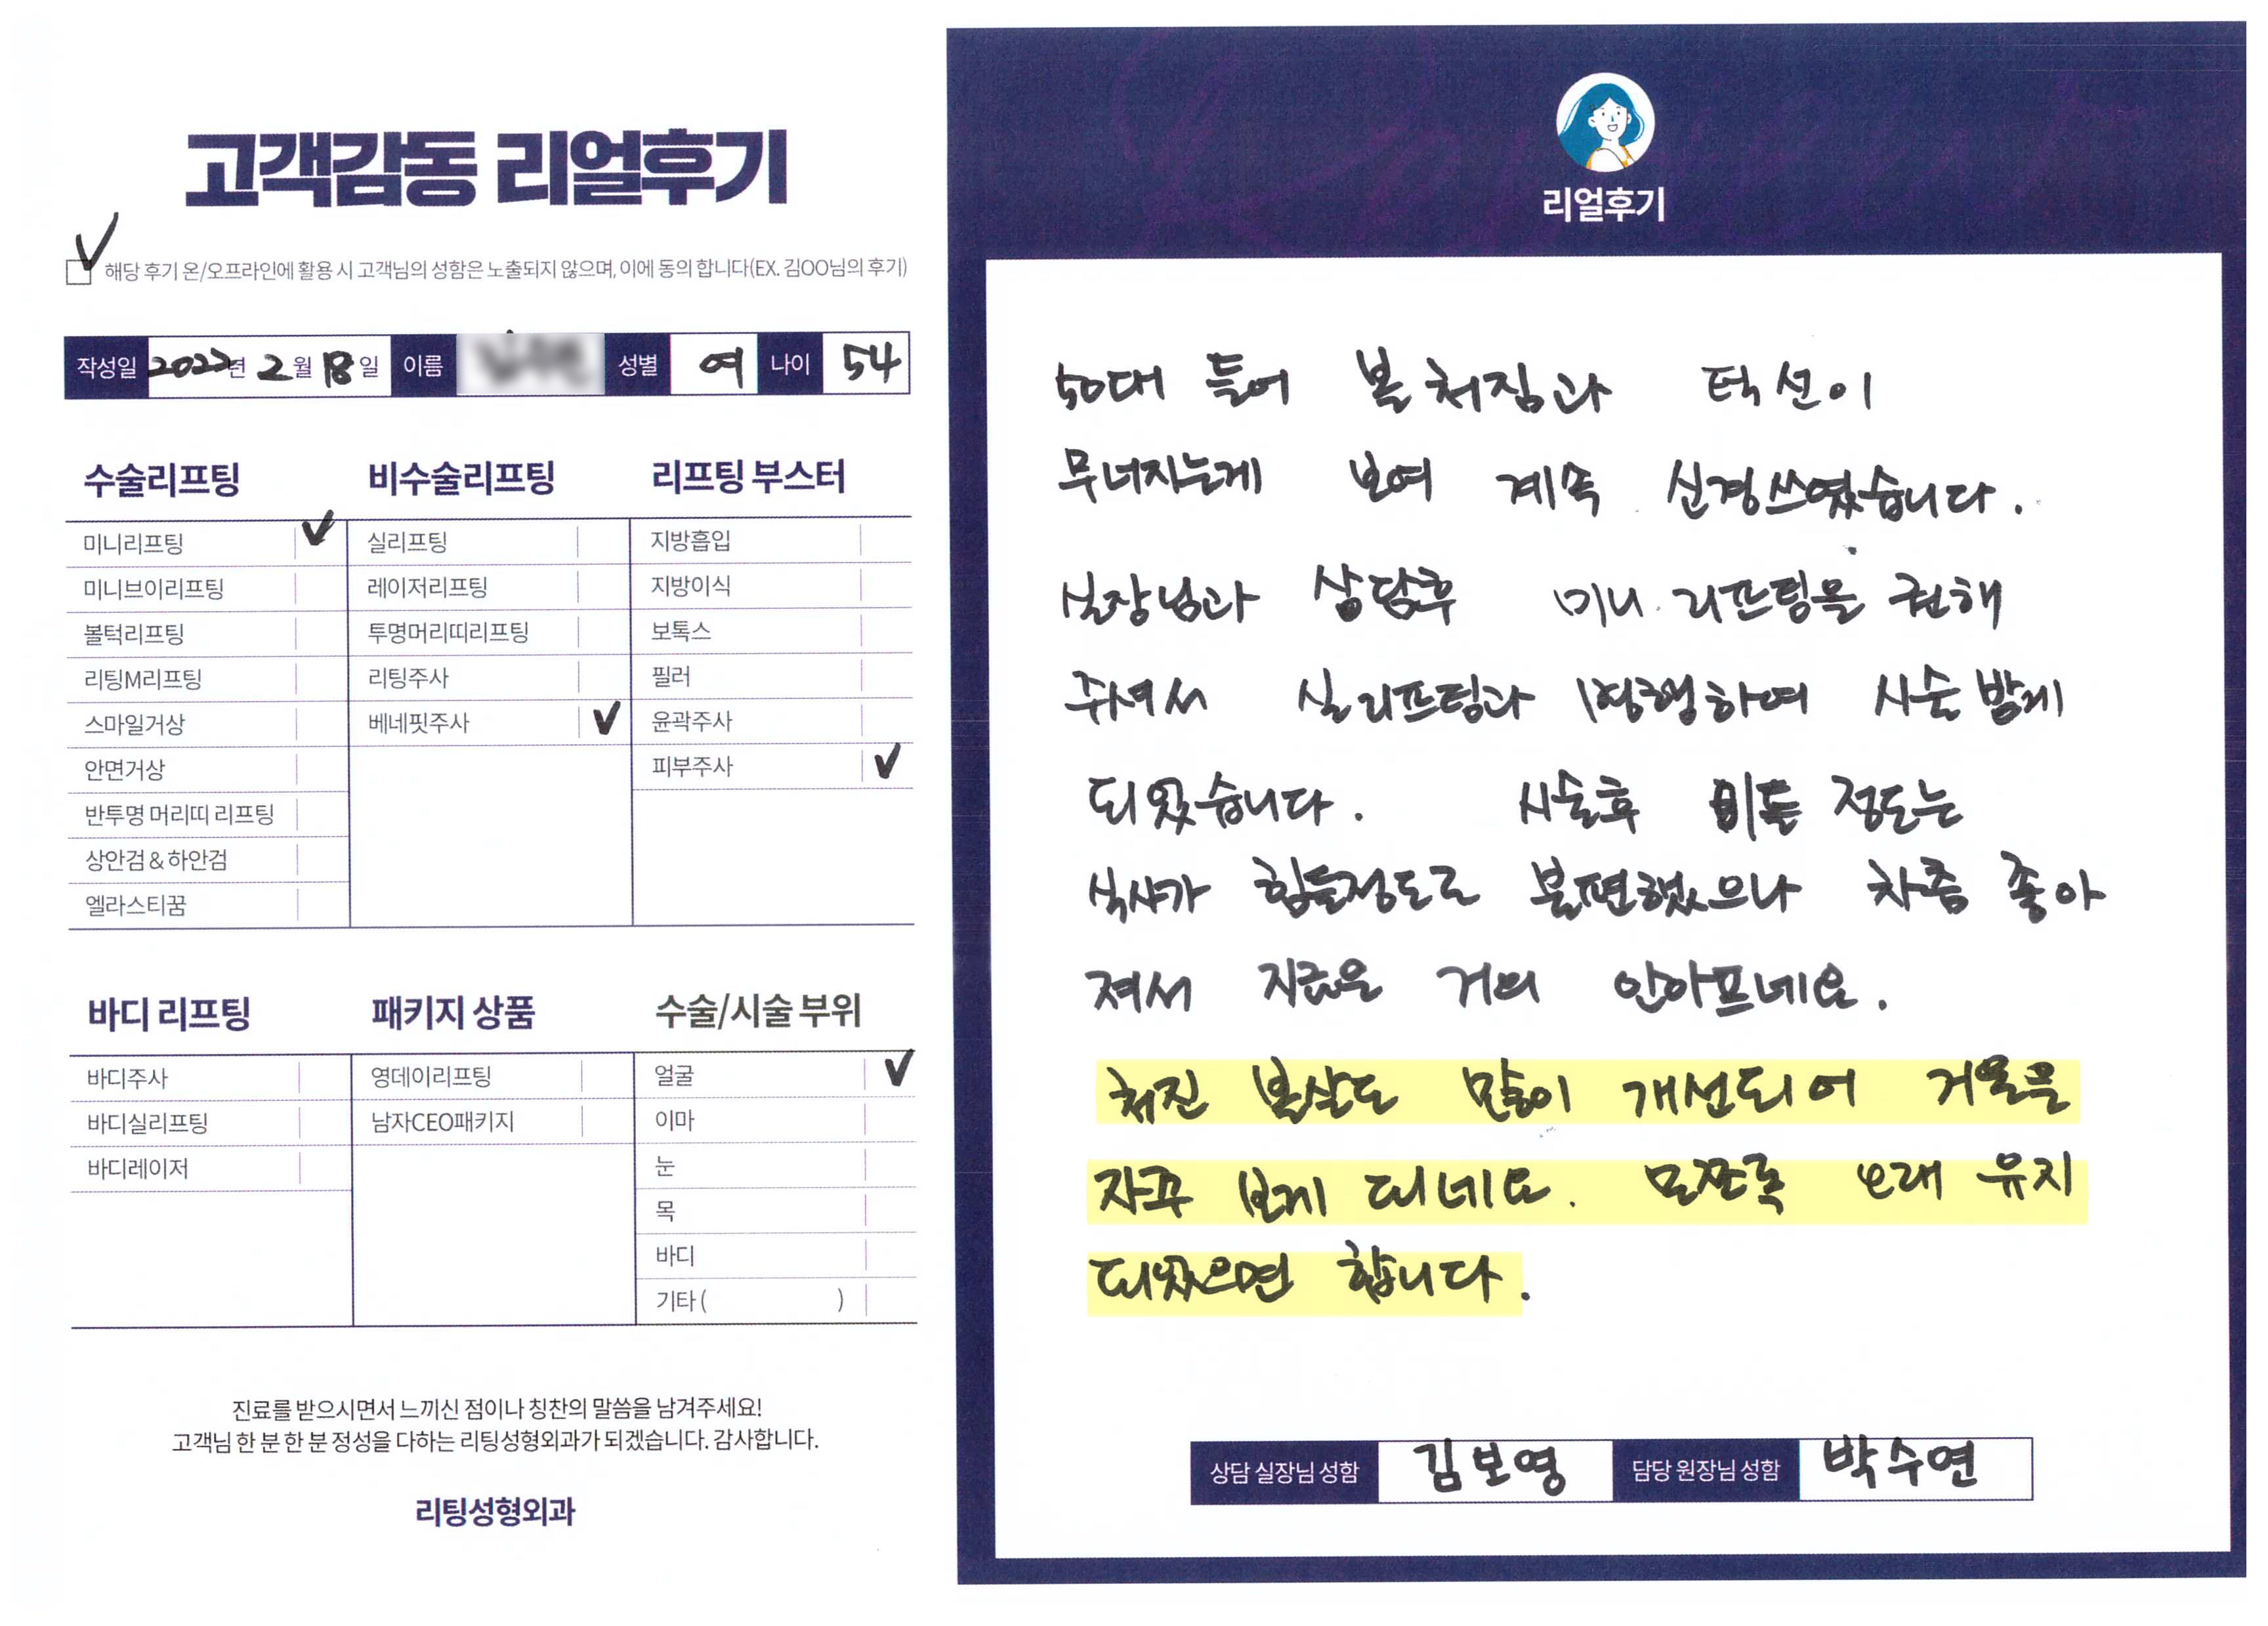 고객감동 리얼후기
해당 후기 온/오프라인에 활용 시 고객님의 성함은 노출되지 않으며, 이에 동의 합니다(EX. 김OO님의 후기)
작성일 년 2월 18일 이름 성별 여 나이 54
수술리프팅
미니리프팅
미니브이리프팅
볼턱리프팅
리팅M리프팅
스마일거상
안면거상
반투명 머리띠 리프팅
상안검&하안검
엘라스티꿈
비수술리프팅
실리프팅
레이저리프팅
투명머리띠리프팅
리팅주사
베네핏주사
리프팅 부스터
지방흡입
지방이식
보톡스
필러
윤곽주사
피부주사
바디 리프팅
바디주사
바디실리프팅
바디레이저
패키지 상품
영데이리프팅
남자CEO패키지
수술/시술 부위
얼굴
이마
눈
목
바디
기타 ( )
진료를 받으시면서 느끼신 점이나 칭찬의 말씀을 남겨주세요!
고객님 한 분 한 분 정성을 다하는 리팅성형외과가 되겠습니다. 감사합니다.
리팅성형외과
리얼후기
50대 들어 볼 처짐과 턱선이
무너지는게 보여 계속 신경쓰였습니다.
실장님과 상담후 미니 리프팅을 권해
주셔서 실리프팅과 병행하여 시술 받게
되었습니다. 시술후 정도는
식사가 힘들정도로 불편했으나 차츰 좋아
져서 지금은 거의 안아프네요.
처진 볼살도 많이 개선되어 거울을
자꾸 보게 되네요. 모쪼록 오래 유지
되었으면 합니다.
상담 실장님 성함 김보영 담당 원장님 성함 박수연